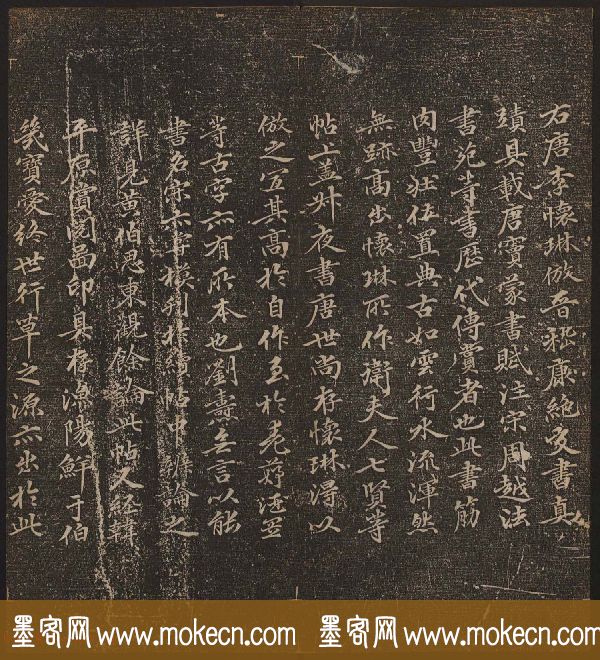 右唐李懷琳倣晉嵇康絕交書真
蹟具載唐竇蒙書賦注宋周越法
書苑等書歷代傳賞者也此書筋
肉豐壯位置典古如雲行水流渾然
無跡高出懷琳所作衛夫人七賢等
帖上盖叔夜書唐世尚存懷琳淂以
倣之宜其高於自作至於
等古字亦有所本也劉壽無言以能
書名宗亦嘗模刻於續帖中辨論之
詳見黃伯思東觀餘論此帖又經韓
平原賞閱啚印具存漁陽鮮于伯
幾寶愛終世行草之源亦出於此
墨客网 www.mokecn.com 墨客网 www.mokecn.com